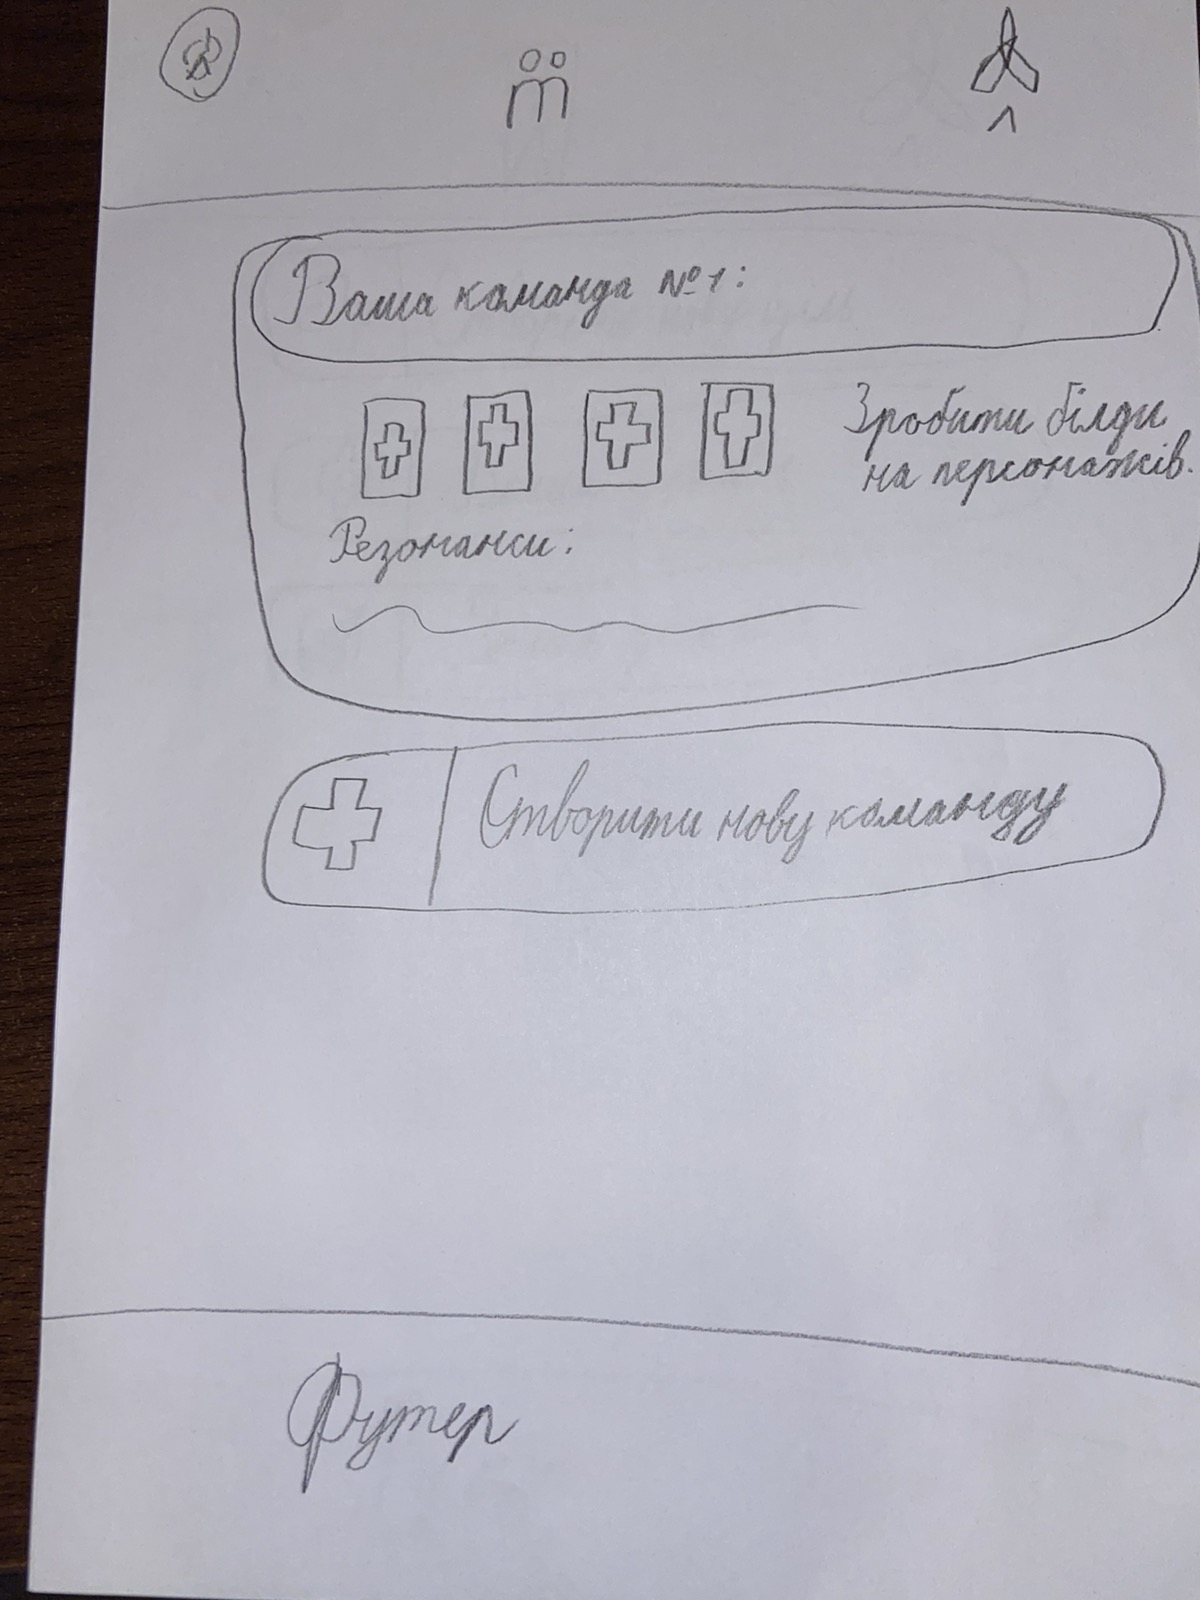 Ваша команда №1:
Зробити білди
на персонажів.
Резонанси:
Створити нову команду
Футер